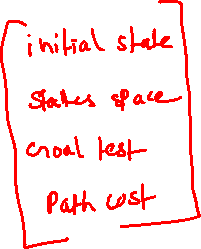 initial state
states space
Goal test
Path cost